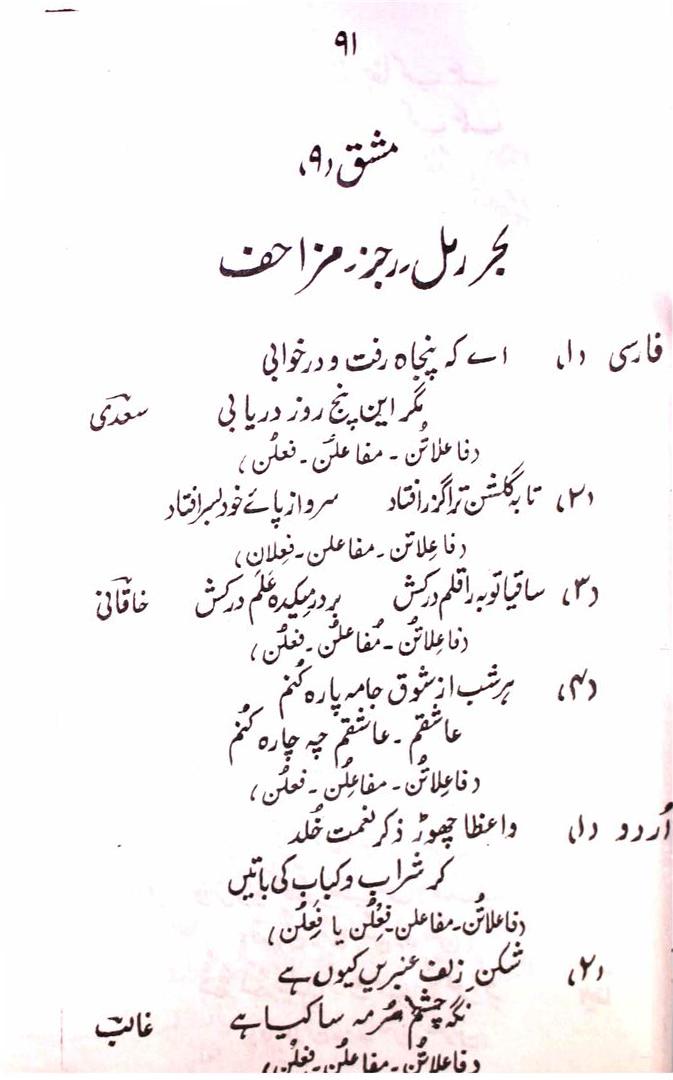 ۹۱
مشق (۹)
بحر رمل۔ رجز۔ مزاحف
فارسی (۱) اے کہ پنجاہ رفت و در خوابی
مگر ایں پنج روز دریابی سعدی
(فاعلاتُن ۔ مفاعلن ۔ فعلُن)
(۲) تا بہ گلشن ترا گزر افتاد سرو از پائے خود بسر افتاد
(فاعِلاتن ۔ مفاعلن ۔ فعِلان)
(۳) ساقیا توبہ را قلم درکش بر درِ میکدہ عَلَم درکش خاقانی
(فاعِلاتُن ۔ مُفاعلُن ۔ فعلُن)
(۴) ہر شب از شوق جامہ پارہ کُنم
عاشقم ۔ عاشقم چہ چارہ کُنم
(فاعِلاتُن ۔ مفاعِلُن ۔ فعلُن)
اُردو (۱) واعظا چھوڑ ذکر نعمت خُلد
کر شراب و کباب کی باتیں
(فاعلاتُن ۔ مفاعلن ۔ فعْلُن یا فَعِلُن)
(۲) شکنِ زلف عنبریں کیوں ہے
نگہ چشم سُرمہ سا کیا ہے غالب
(فاعلاتُن ۔ مفاعلُن ۔ فعلُن)